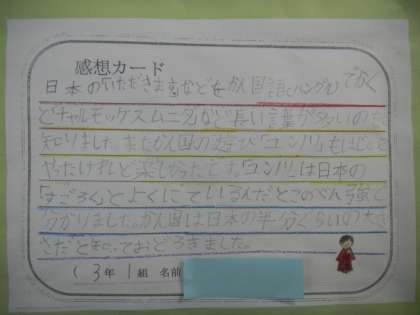 感想カード
日本の「いただきます」などをかん国語(ハングル)でかく
とチャルモッケスムニダなど長い言葉が多いのを
知りました。またかん国の遊び「ユンノリ」もはじめて
やったけれど楽しかったです。「ユンノリ」は日本の
「すごろく」とよくにているんだとこのべん強で
分かりました。かん国は日本の半分ぐらいの大き
さだと知っておどろきました。
(3年 1組 名前